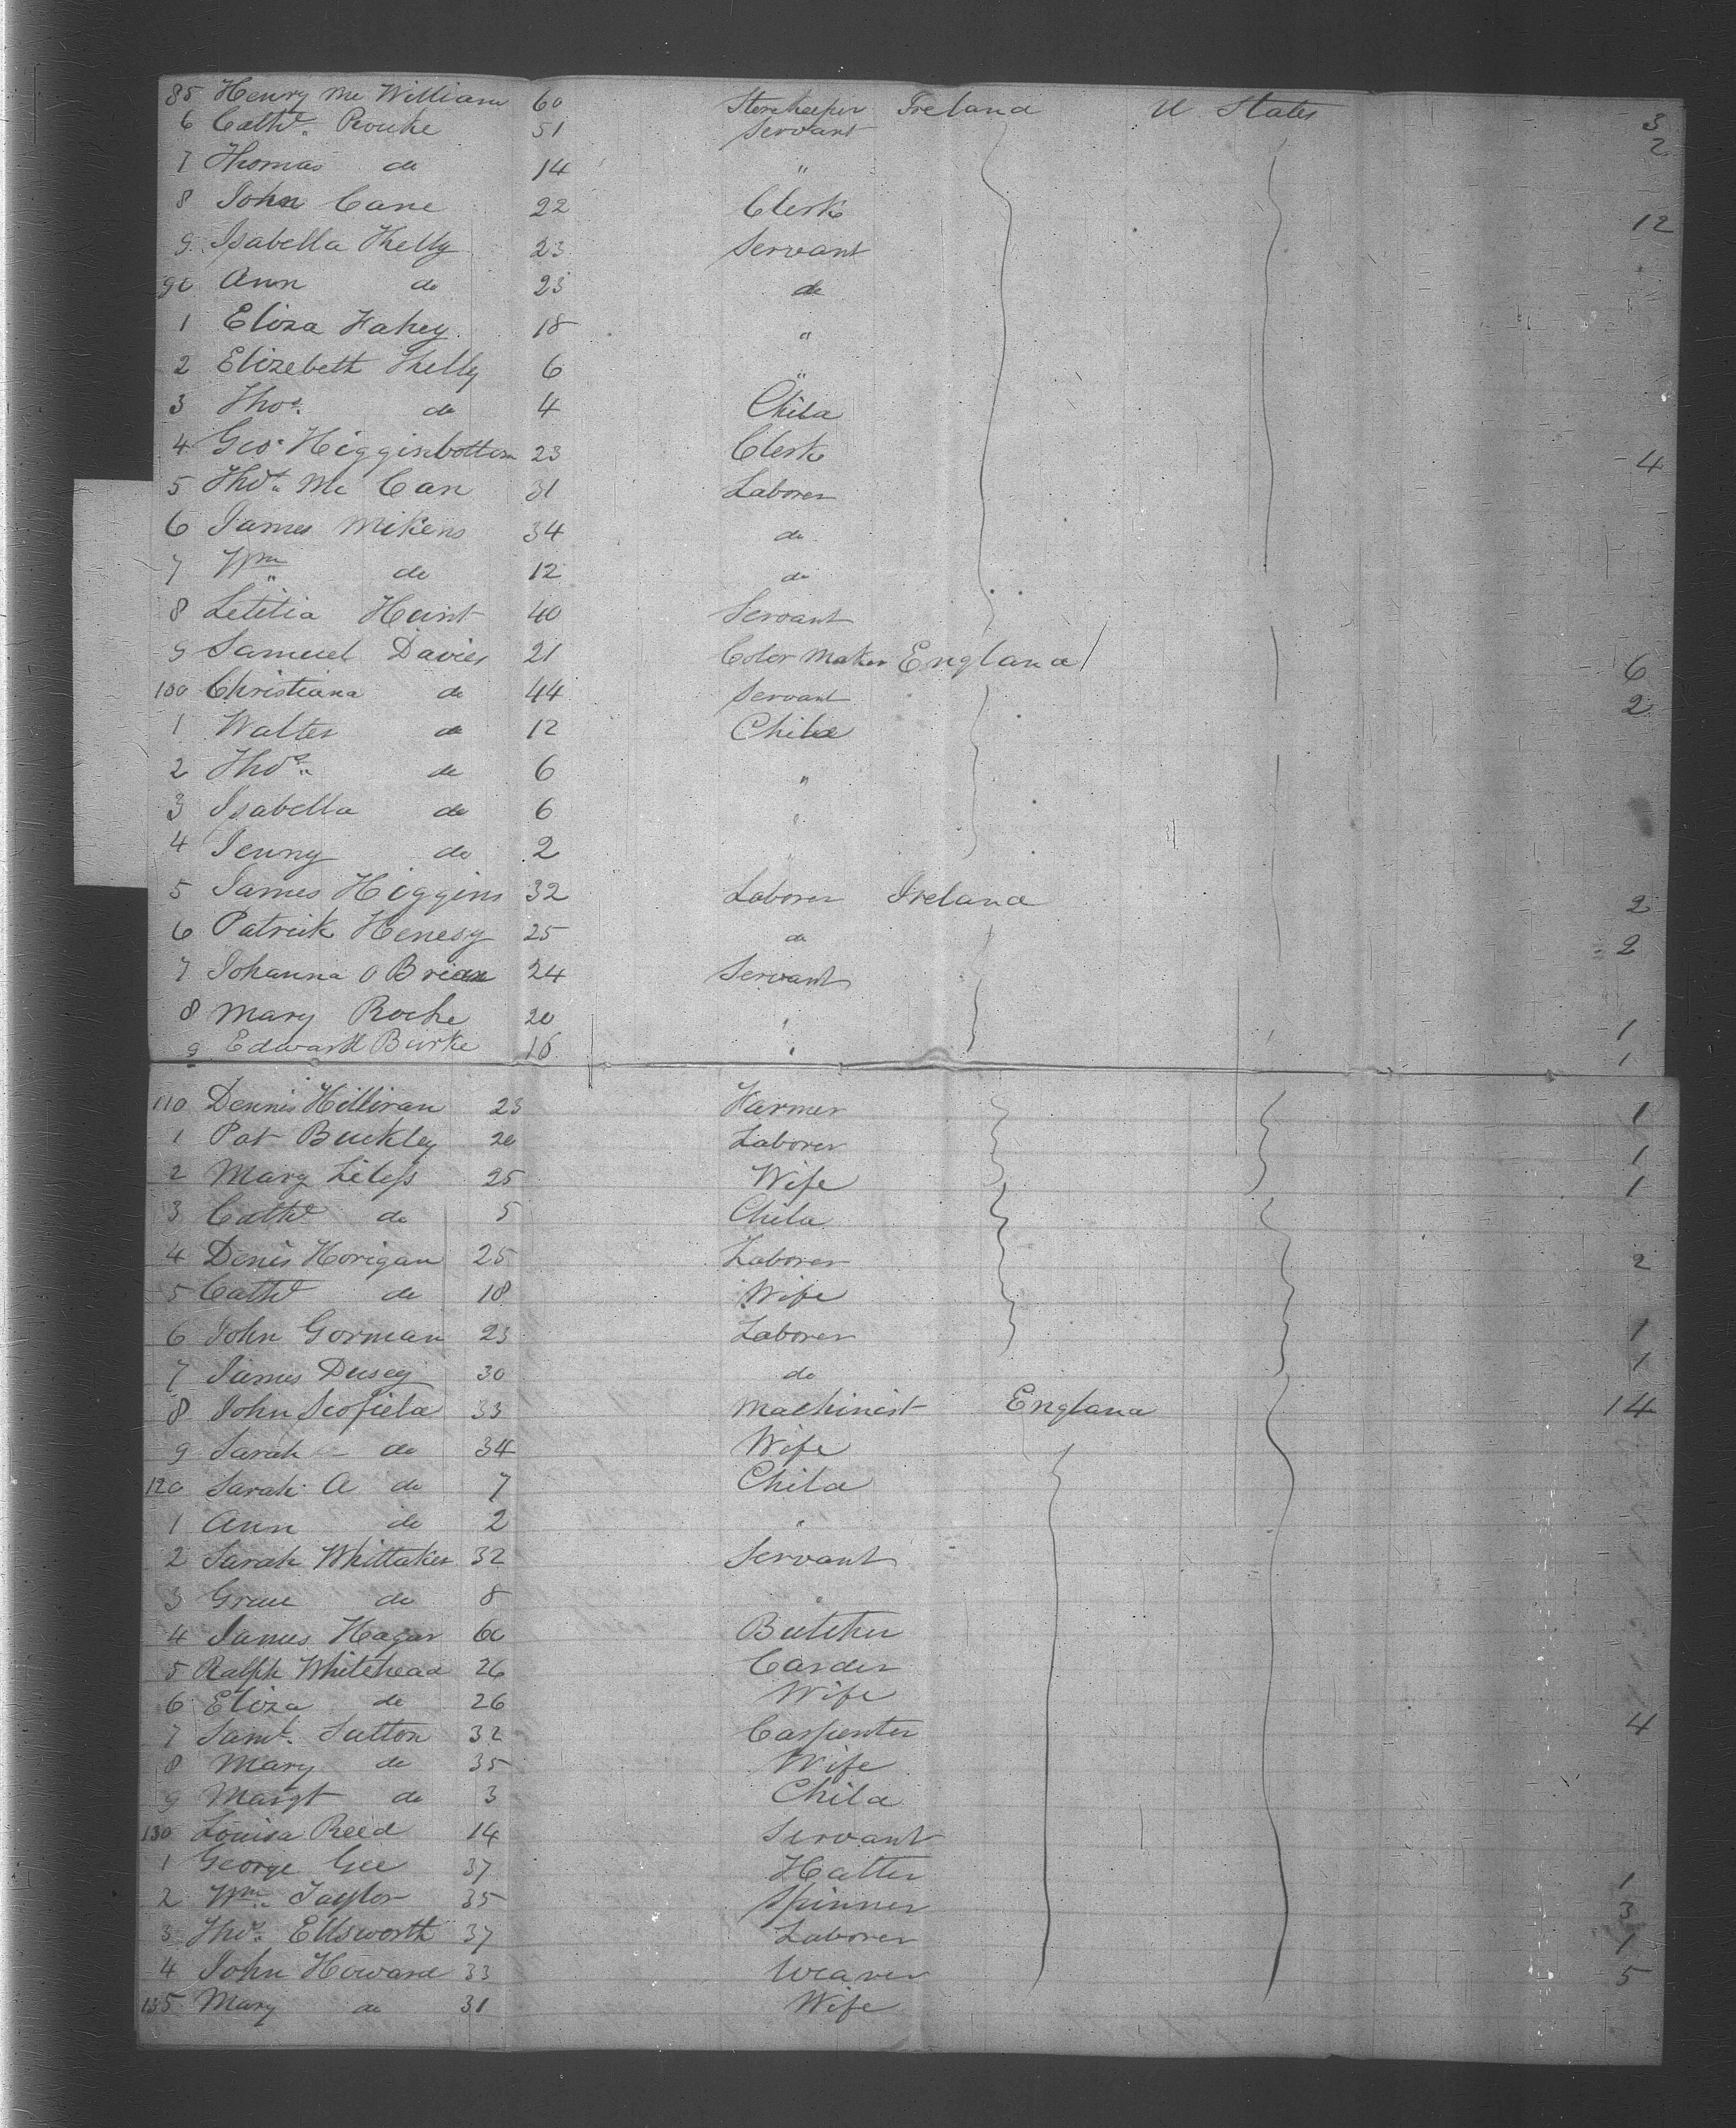 85 Henry Mc William 60 Storekeeper Ireland U States 3
6 Cathe. Rouke 51 Servant 2
7 Thomas do 14 "
8 John Cane 22 Clerk 12
9 Isabella Kelly 23 Servant
90 Ann do 23 do
1 Eliza Fahey 18 "
2 Elizebeth Kelly 6 "
3 Thos. do 4 Child
4 Geo. Higginbottom 23 Clerk 4
5 Thos. Mc Can 31 Laborer
6 James Mikens 34 do
7 Wm " do 12 do
8 Letitia Hunt 40 Servant
9 Samuel Davies 21 Color Maker England 6
100 Christiana do 44 Servant 2
1 Walter do 12 Child
2 Thos. do 6 "
3 Isabella do 6 "
4 Jenny do 2
5 James Higgins 32 Laborer Ireland 2
6 Patrick Henesy 25 do 2
7 Johanna O Brian 24 Servant
8 Mary Roche 20 " 1
9 Edward Burke 16 " 1
110 Dennis Hilliran 23 Farmer 1
1 Pat Buckley 20 Laborer 1
2 Mary 25 Wife 1
3 Cathe do 5 Child
4 Denis Horigan 25 Laborer 2
5 Cathe do 18 Wife
6 John Gorman 23 Laborer 1
7 James Dusey 30 do 1
8 John Scofield 33 Machinist England 14
9 Sarah - do 34 Wife
120 Sarah A do 7 Child
1 Ann do 2 "
2 Sarah Whittaker 32 Servant
3 Grace do 8 "
4 James Hagar 60 Butcher
5 Ralph Whitehead 26 Carder
6 Eliza do 26 Wife
7 Saml. Sutton 32 Carpenter 4
8 Mary do 35 Wife
9 Margt do 3 Child
130 Louisa Reed 14 Servant
1 George Gee 37 Hatter 1
2 Wm. Taylor 35 Spinner 3
3 Thos. Ellsworth 37 Laborer 1
4 John Howard 33 Weaver 5
135 Mary do 31 Wife